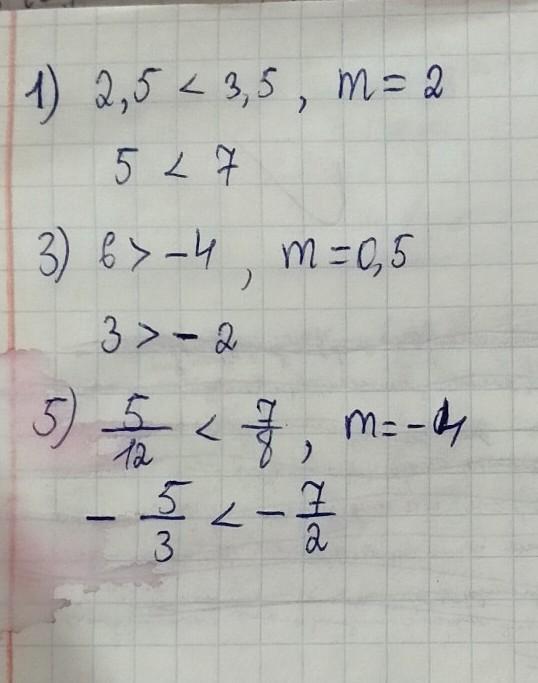 1) 2,5 < 3,5 , m = 2
5 < 7
3) 6 > -4 , m = 0,5
3 > - 2
5) 5/12 < 7/8 , m = -4
- 5/3 < - 7/2